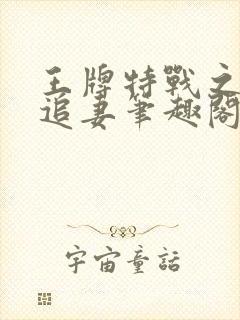 王牌特戰之
追妻筆趣閣
宇宙童話